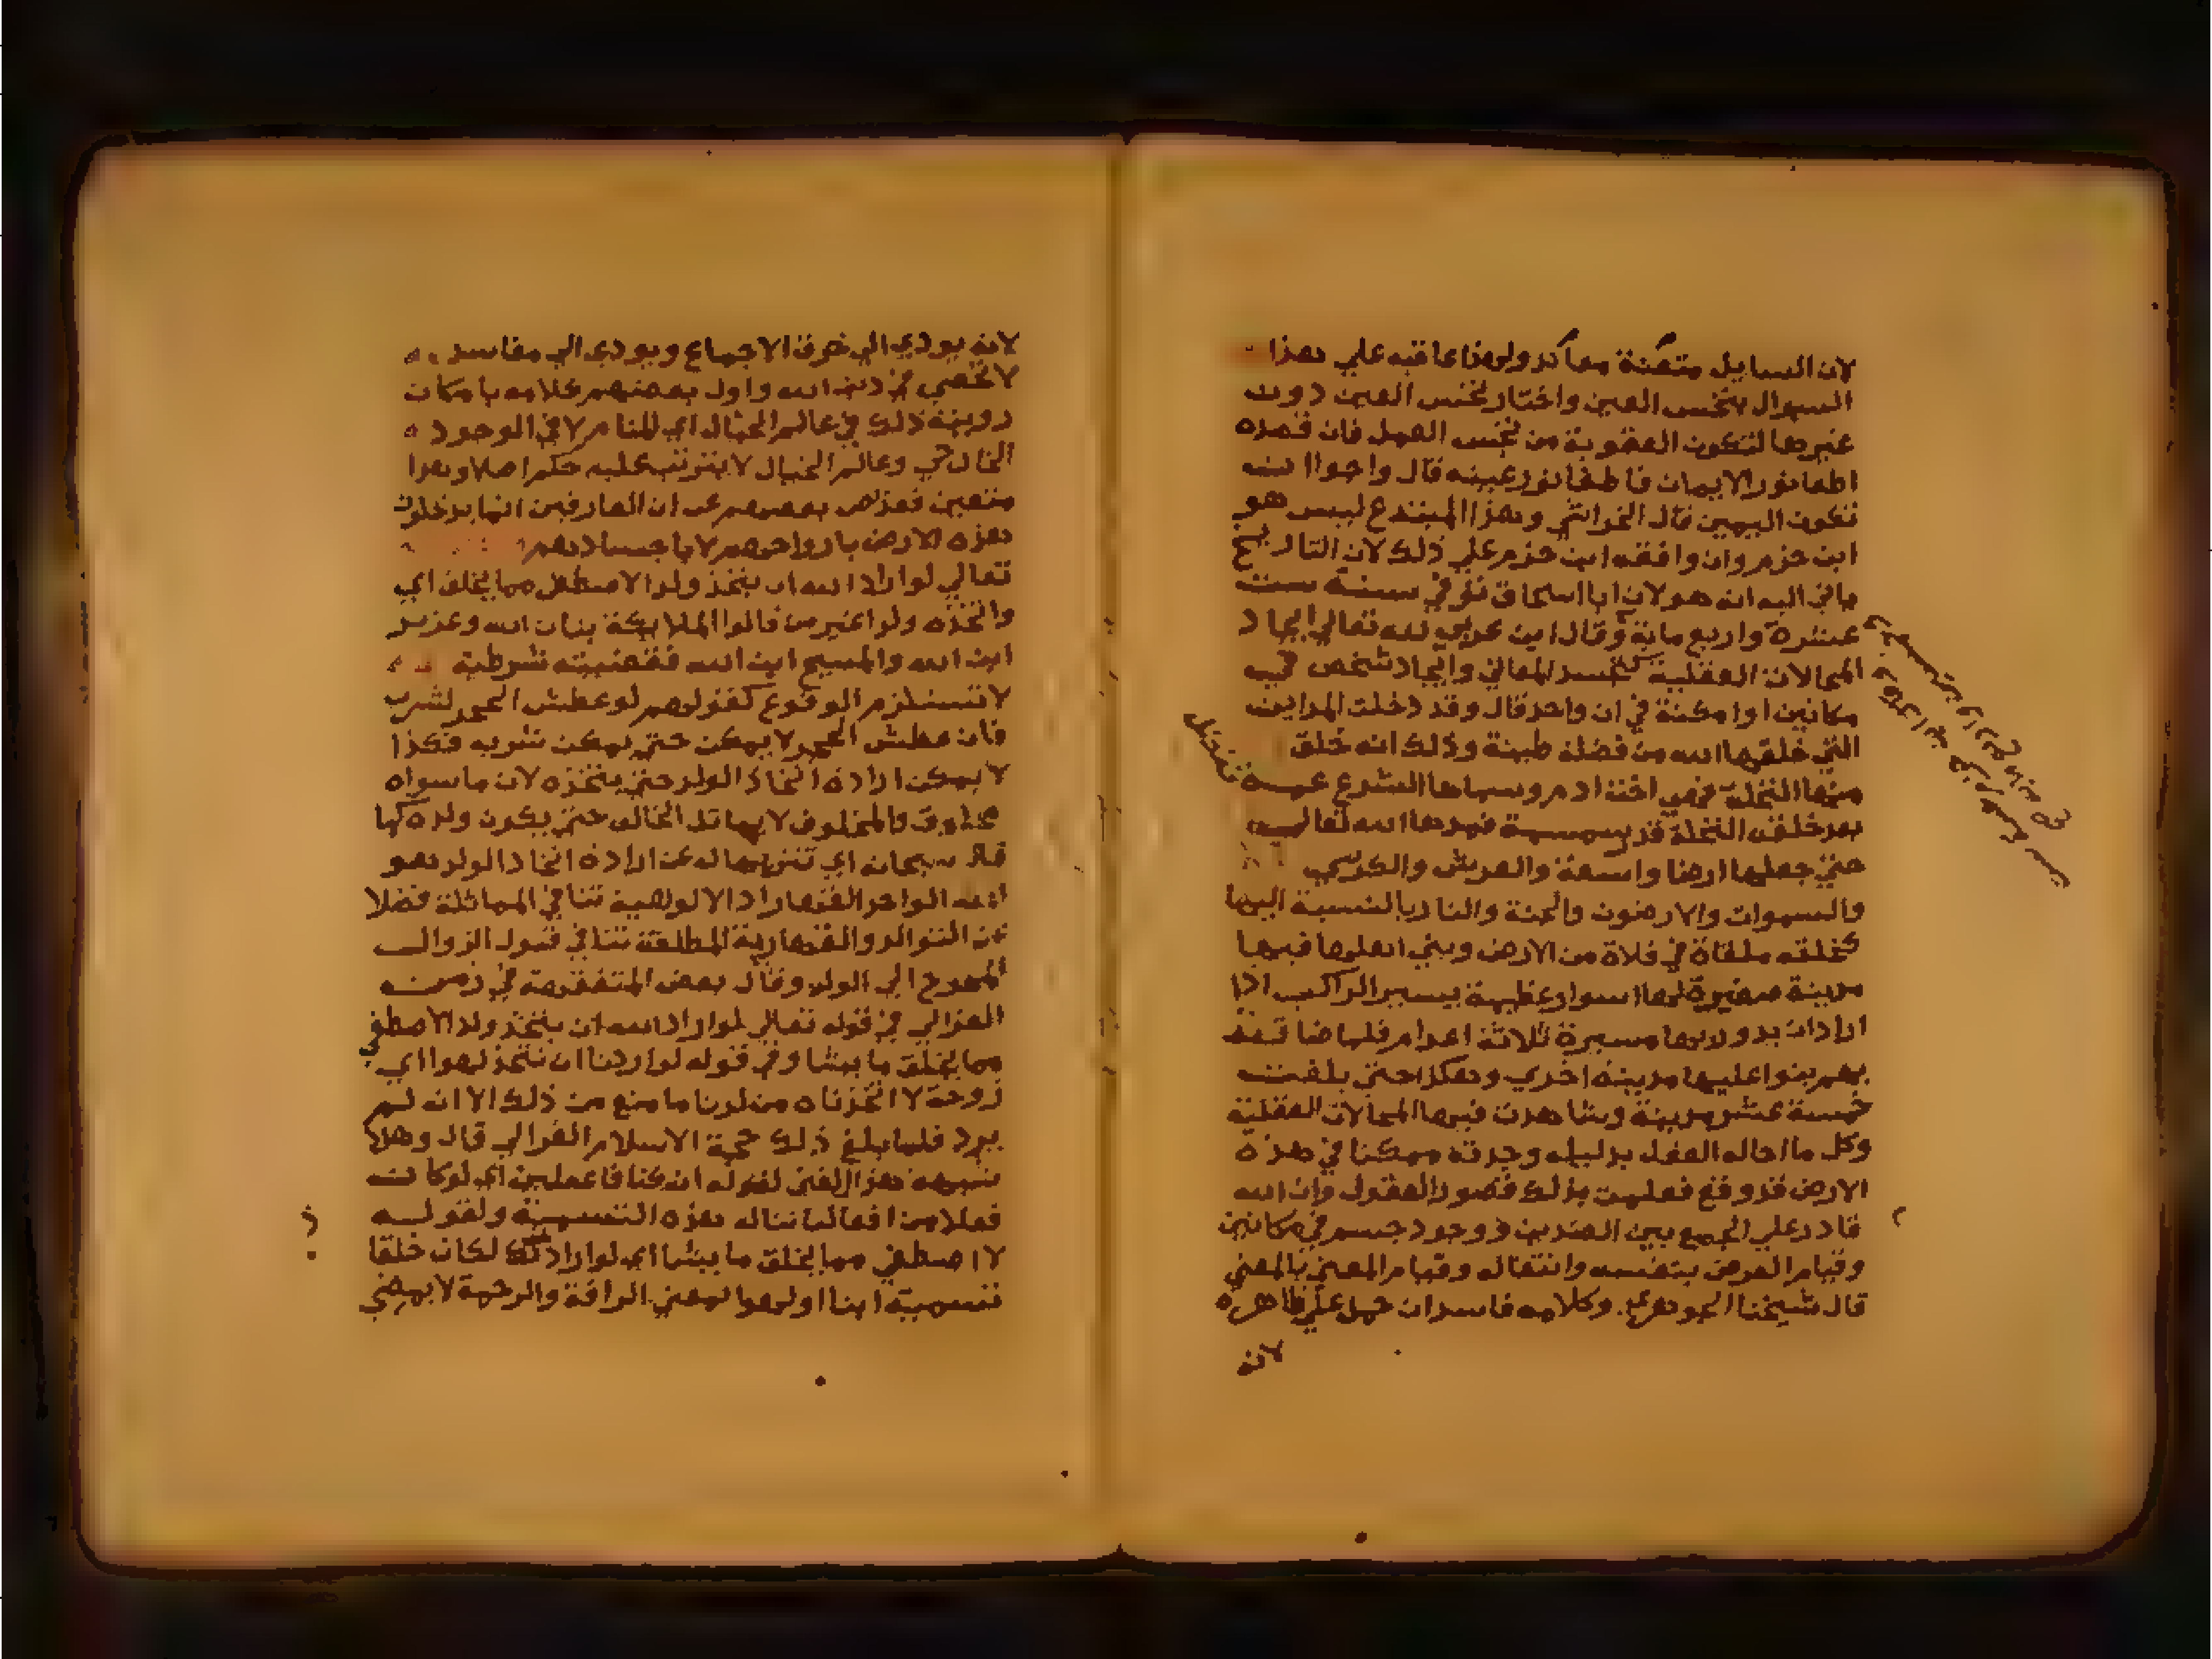 لان السايل متعنتة معاند ولهذا عاقبه علي هذا
السوال بنخس العين واختار نخس العين دون
غيرها لتكون العقوبة من جنس العمل فان قصده
اطفا نور الايمان فاطفا نور عينه قال وارجوا ان
تكون اليمين قال الخراشي وهذا المبتدع ليس هو
ابن حزم وان وافقه ابن حزم علي ذلك لان التاريخ
يابي اليه ان هو لان ابا اسحاق توفي سنة ست
عشرة واربع ماية وقال ابن عربي لله تعالي ايجاد
المحالات العقلية كتجسد المعاني وايجاد شخص في
مكانين او امكنة في ان واحد قال وقد دخلت المداين
التي خلقها الله من فضلة طينة وذلك انه خلق
منها النخلة فهي اخت ادم وسماها الشرع عمة
بعد خلق النخلة قدر سمسمة فمدها الله تعالي
حتي جعلها ارضا واسعة والعرش والكرسي
والسموات والارضون والجنة والنار بالنسبة اليها
كحلقه ملقاة في فلاة من الارض وبني اهلها فيها
مدينة صغيرة لها اسوار عظيمة يسير الراكب اذا
اراد ان يدور بها مسيرة ثلاثة اعوام فلما ضاقت
بهم بنوا عليها مدينة اخري وهكذا حتي بلغت
خمسة عشر مدينة وشاهدت فيها المحالات العقلية
وكل ما احاله العقل بدليله وجدته ممكنا في هذه
الارض قد وقع فعلمت بذلك قصور العقول وان الله
قادر علي الجمع بين الضدين ووجود جسم في مكانين
وقيام العرض بنفسه وانتقاله وقيام المعني بالمعني
قال شيخنا الجوهري وكلامه فاسد ان حمل علي ظاهره
لانه
لانه يودي الي خرق الاجماع ويودي الي مفاسد
لا تخفي في دين الله واول بعضهم كلامه بامكان
روينة ذلك في عالم الخيال اي المنام لا في الوجود
الخارجي وعالم الخيال لا يترتب عليه حكم اصلا وهذا
متعين فقد نص بعضهم عن ان العارفين انما يدخلون
هذه الارض بارواحهم لا باجسادهم
تعالي لو اراد الله ان يتخذ ولدا لاصطفي مما يخلق اي
واتخذه ولدا غير من قالوا الملايكة بنات الله وعزير
ابن الله والمسيح ابن الله فقضيته شرطية
لا تستلزم الوقوع كقولهم لو عطش الحجر لشرب
فان عطش الحجر لا يمكن حتي يمكن شربه فكذا
لا يمكن ارادة اتخاذ الولد حتي يتخذه لان ما سواه
مخلوق والمخلوق لا يماثل الخالق حتي يكون ولده كما
قال سبحانه اي تنزيها له عن ارادة اتخاذ الولد هو
الله الواحد القهار اذ الالوهية تنافي المماثلة فضلا
عن التوالد والقهارية المطلقة تنافي قبول الزوال
المحوج الي الولد وقال بعض المتفقهة في زمن
الغزالي في قوله تعالي لو اراد الله ان يتخذ ولدا لاصطفي
مما يخلق ما يشا وفي قوله لو اردنا ان نتخذ لهوا اي
زوجة لاتخذناه من لدنا ما منع من ذلك الا انه لم
يرد فلما بلغ ذلك حجة الاسلام الغزالي قال وهلا
شبهه هذا الغبي لقوله ان كنا فاعلين اي لو كانت
فعلا من افعالنا هذه التسمية ولقوله
لاصطفي مما يخلق ما يشا اي لو اراد ذلك لكان خلقا
تسميته ابنا او لهوا بمعني الرافة والرحمة لا بمعني